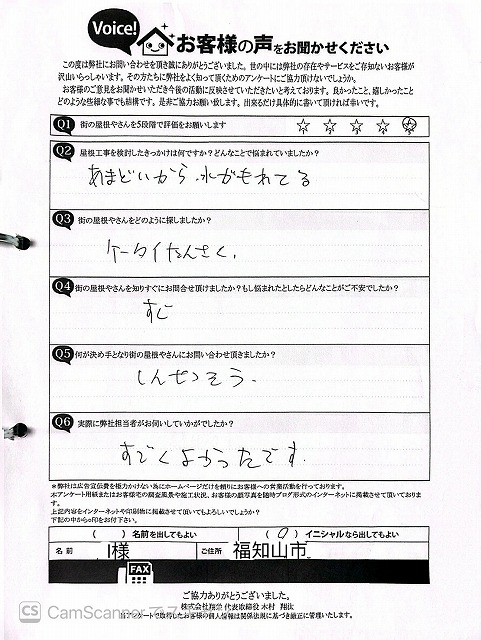 Voice!
お客様の声をお聞かせください
この度は弊社にお問い合わせを頂き誠にありがとうございました。世の中には弊社の存在やサービスをご存知ないお客様が
沢山いらっしゃいます。その方たちに弊社をよく知って頂くためのアンケートにご協力頂けないでしょうか。
お客様のご意見をお聞かせいただき今後の活動に反映させていただきたいと考えております。良かったこと、嬉しかったこと
どのような些細な事でも結構です。是非ご協力お願い致します。出来るだけ具体的に書いて頂ければ幸いです。
Q1 街の屋根やさんを5段階で評価をお願いします ☆ ☆ ☆ ☆ ☆
Q2 屋根工事を検討したきっかけは何ですか?どんなことで悩まれていましたか?
あまどいから.水がもれてる
Q3 街の屋根やさんをどのように探しましたか?
ケータイたんさく.
Q4 街の屋根やさんを知りすぐにお問合せ頂けましたか?もし悩まれたとしたらどんなことがご不安でしたか?
すぐ
Q5 何が決め手となり街の屋根やさんにお問い合わせ頂きましたか?
しんせつそう.
Q6 実際に弊社担当者がお伺いしていかがでしたか?
すごくよかったです.
※弊社は広告宣伝費を極力かけない為にホームページだけを頼りにお客様への営業活動を行っております。
本アンケート用紙またはお客様宅の調査風景や施工状況、お客様の顔写真を随時ブログ形式のインターネットに掲載させて頂いておりま
す。
上記内容をインターネットや印刷物に掲載させて頂いてもよろしいでしょうか?
下記の中から○印をお付下さい。
( ) 名前を出してもよい ( ○ ) イニシャルなら出してもよい
名前 I様 ご住所 福知山市
FAX
ご協力ありがとうございました。
株式会社翔治 代表取締役 木村 翔汰
当アンケートで取得したお客様の個人情報は関係法規に基づき厳正に管理いたします。
CS CamScanner